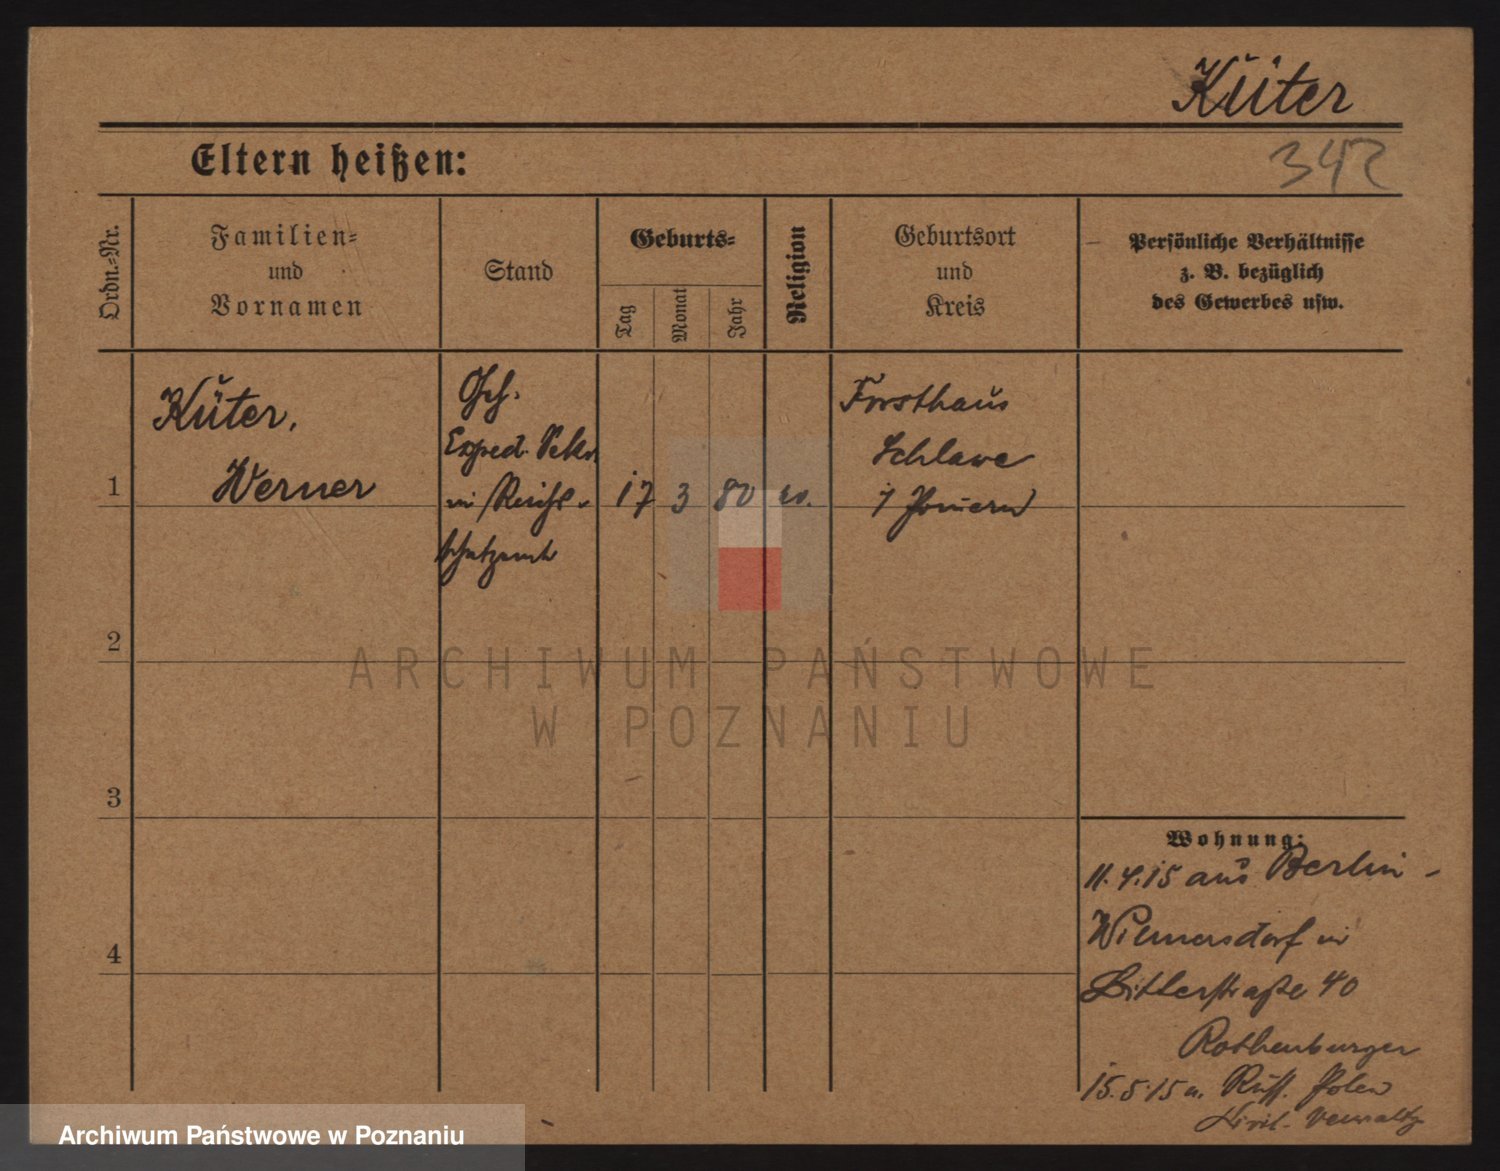 Küter
Eltern heißen:
342
Ordn.-Nr.
Familien-
und
Vornamen
Stand
Geburts-
Tag
Monat
Jahr
Religion
Geburtsort
und
Kreis
Persönliche Verhältnisse
z. B. bezüglich
des Gewerbes usw.
1
Küter,
Werner
Geh.
Exped. Sekr.
im Reichs-
schatzamt
17 3 80 ev.
Forsthaus
Schlawe
i/ Pommern
2
3
4
Wohnung:
11.4.15 aus Berlin-
Wilmersdorf in
Ritterstraße 40
Rothenburger
15.5.15 n. Russ. Polen
Zivil-Verwaltg
ARCHIWUM PAŃSTWOWE
W POZNANIU
Archiwum Państwowe w Poznaniu